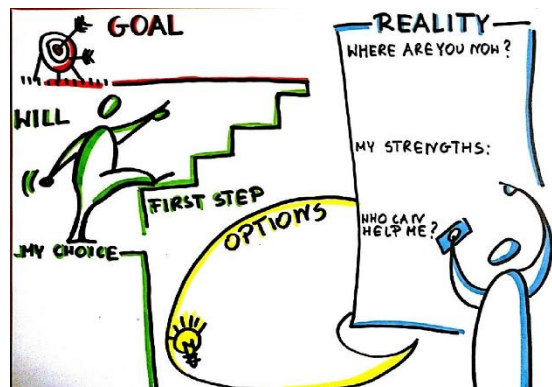 GOAL
WILL
FIRST STEP
MY CHOICE
OPTIONS
REALITY
WHERE ARE YOU NOW?
MY STRENGTHS:
WHO CAN
HELP ME?